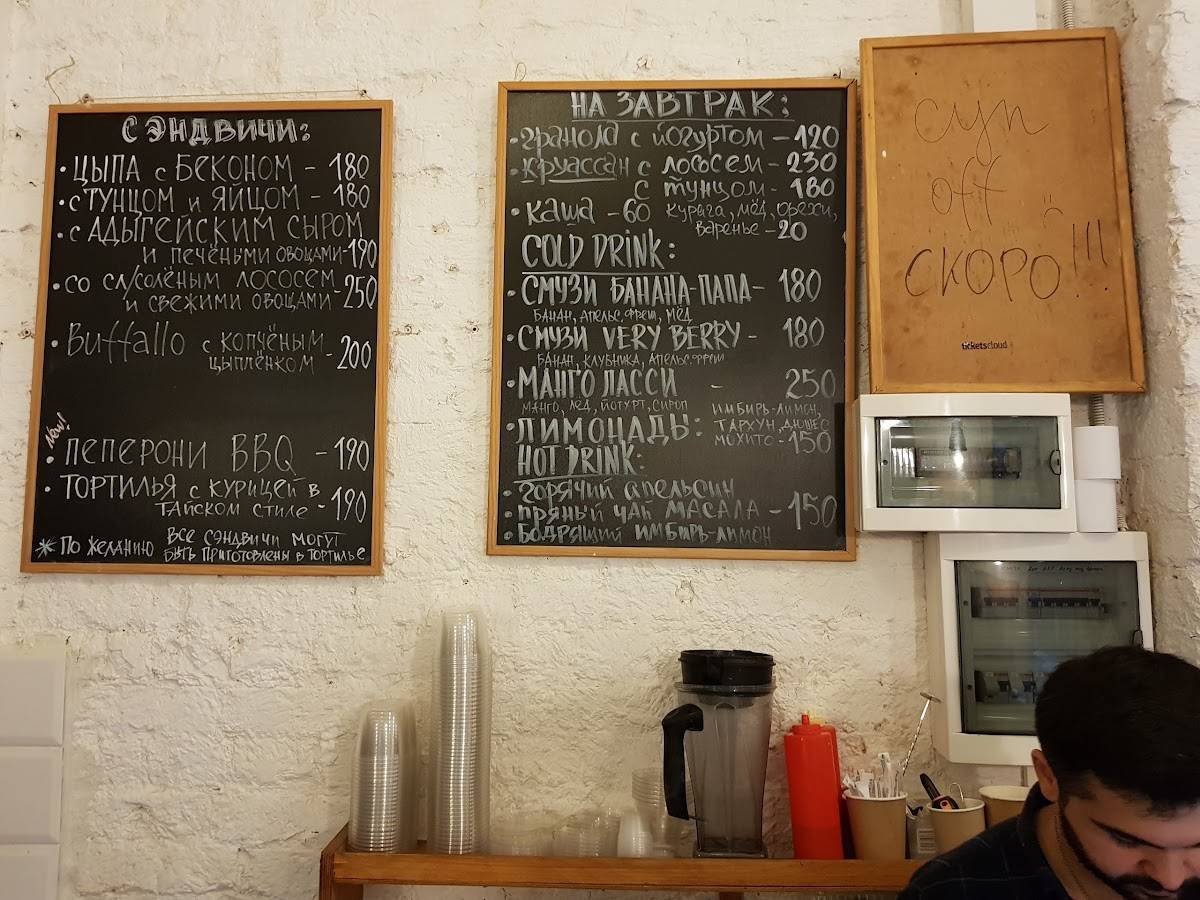 СЭНДВИЧИ:
• ЦЫПА с БЕКОНОМ - 180
• с ТУНЦОМ и ЯЙЦОМ - 180
• с АДЫГЕЙСКИМ СЫРОМ
и ПЕЧЁНЫМИ ОВОЩАМИ - 190
• СО СЛ/СОЛЁНЫМ ЛОСОСЕМ
и СВЕЖИМИ ОВОЩАМИ - 250
• Buffallo с КОПЧЁНЫМ
ЦЫПЛЁНКОМ - 200
New!
• ПЕПЕРОНИ BBQ - 190
• ТОРТИЛЬЯ с КУРИЦЕЙ В
ТАЙСКОМ СТИЛЕ - 190
* ПО ЖЕЛАНИЮ ВСЕ СЭНДВИЧИ МОГУТ
БЫТЬ ПРИГОТОВЛЕНЫ В ТОРТИЛЬЕ
НА ЗАВТРАК:
• гранола с йогуртом - 120
• круассан с лососем - 230
с тунцом - 180
• каша - 60 курага, мёд, орехи,
варенье - 20
COLD DRINK:
• СМУЗИ БАНАНА-ПАПА - 180
БАНАН, АПЕЛЬС. ФРЕШ, МЁД
• СМУЗИ VERY BERRY - 180
БАНАН, КЛУБНИКА, АПЕЛЬС. ФРЕШ
• МАНГО ЛАССИ - 250
МАНГО, ЛЁД, ЙОГУРТ, СИРОП
• ЛИМОНАДЫ: ИМБИРЬ-ЛИМОН,
ТАРХУН, ДЮШЕС
МОХИТО - 150
HOT DRINK:
• ГОРЯЧИЙ АПЕЛЬСИН
• ПРЯНЫЙ ЧАЙ МАСАЛА - 150
• БОДРЯЩИЙ ИМБИРЬ-ЛИМОН
суп
off
СКОРО!!!
ticketscloud